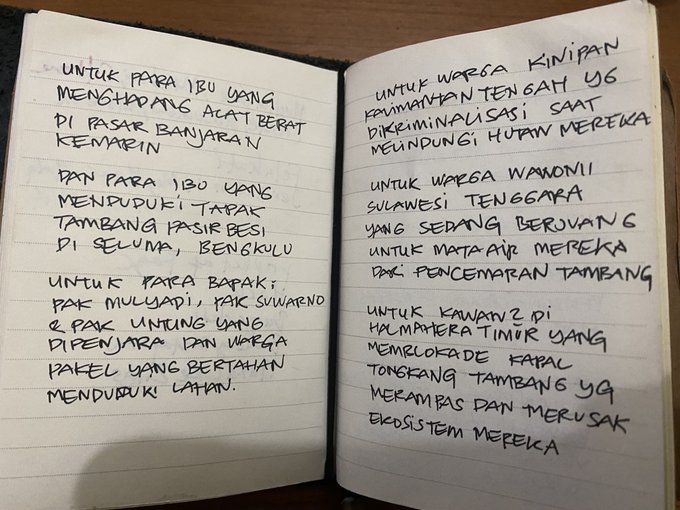 UNTUK PARA IBU YANG
MENGHADANG ALAT BERAT
DI PASAR BANJARAN
KEMARIN
DAN PARA IBU YANG
MENDUDUKI TAPAK
TAMBANG PASIR BESI
DI SELUMA, BENGKULU
UNTUK PARA BAPAK:
PAK MULYADI, PAK SUWARNO
& PAK UNTUNG YANG
DIPENJARA DAN WARGA
PAKEL YANG BERTAHAN
MENDUDUKI LAHAN.
UNTUK WARGA KINIPAN
KALIMANTAN TENGAH YG
DIKRIMINALISASI SAAT
MELINDUNGI HUTAN MEREKA
UNTUK WARGA WAWONII
SULAWESI TENGGARA
YANG SEDANG BERJUANG
UNTUK MATA AIR MEREKA
DARI PENCEMARAN TAMBANG
UNTUK KAWAN2 DI
HALMAHERA TIMUR YANG
MEMBLOKADE KAPAL
TONGKANG TAMBANG YG
MERAMPAS DAN MERUSAK
EKOSISTEM MEREKA